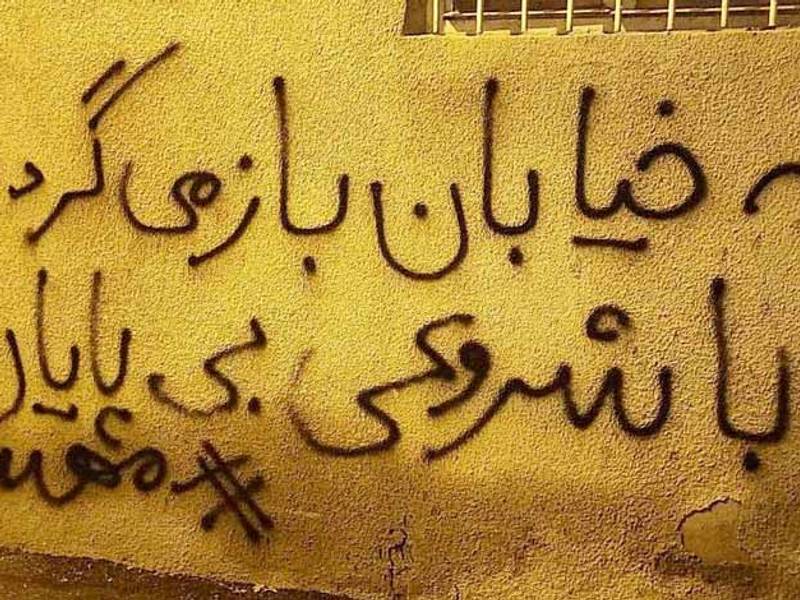 خیابان باز می گرد
با شروعی بی پایان